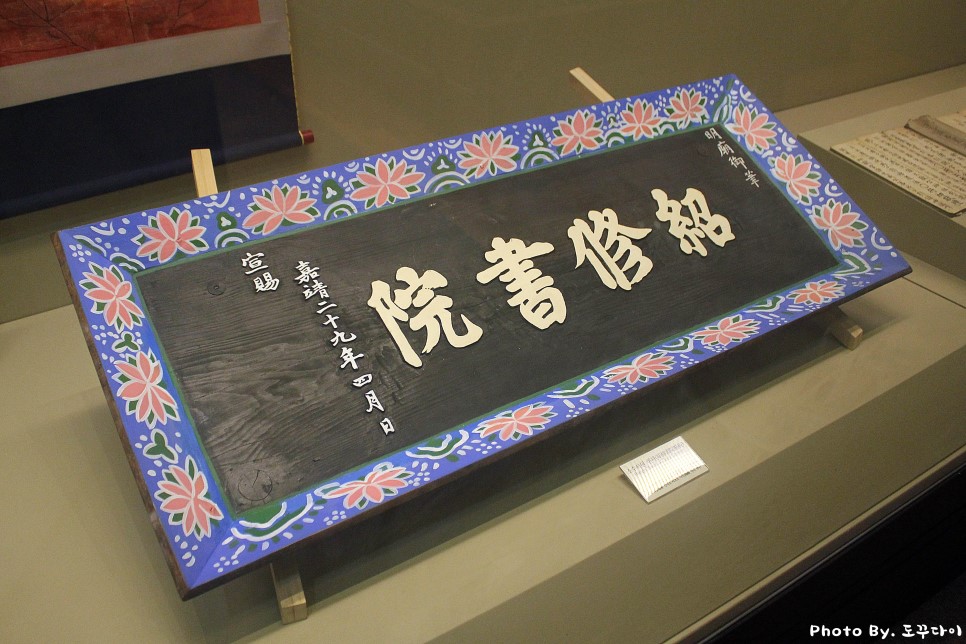 明廟御筆
紹修書院
嘉靖二十九年四月日
宣賜
Photo By. 도꾸다이